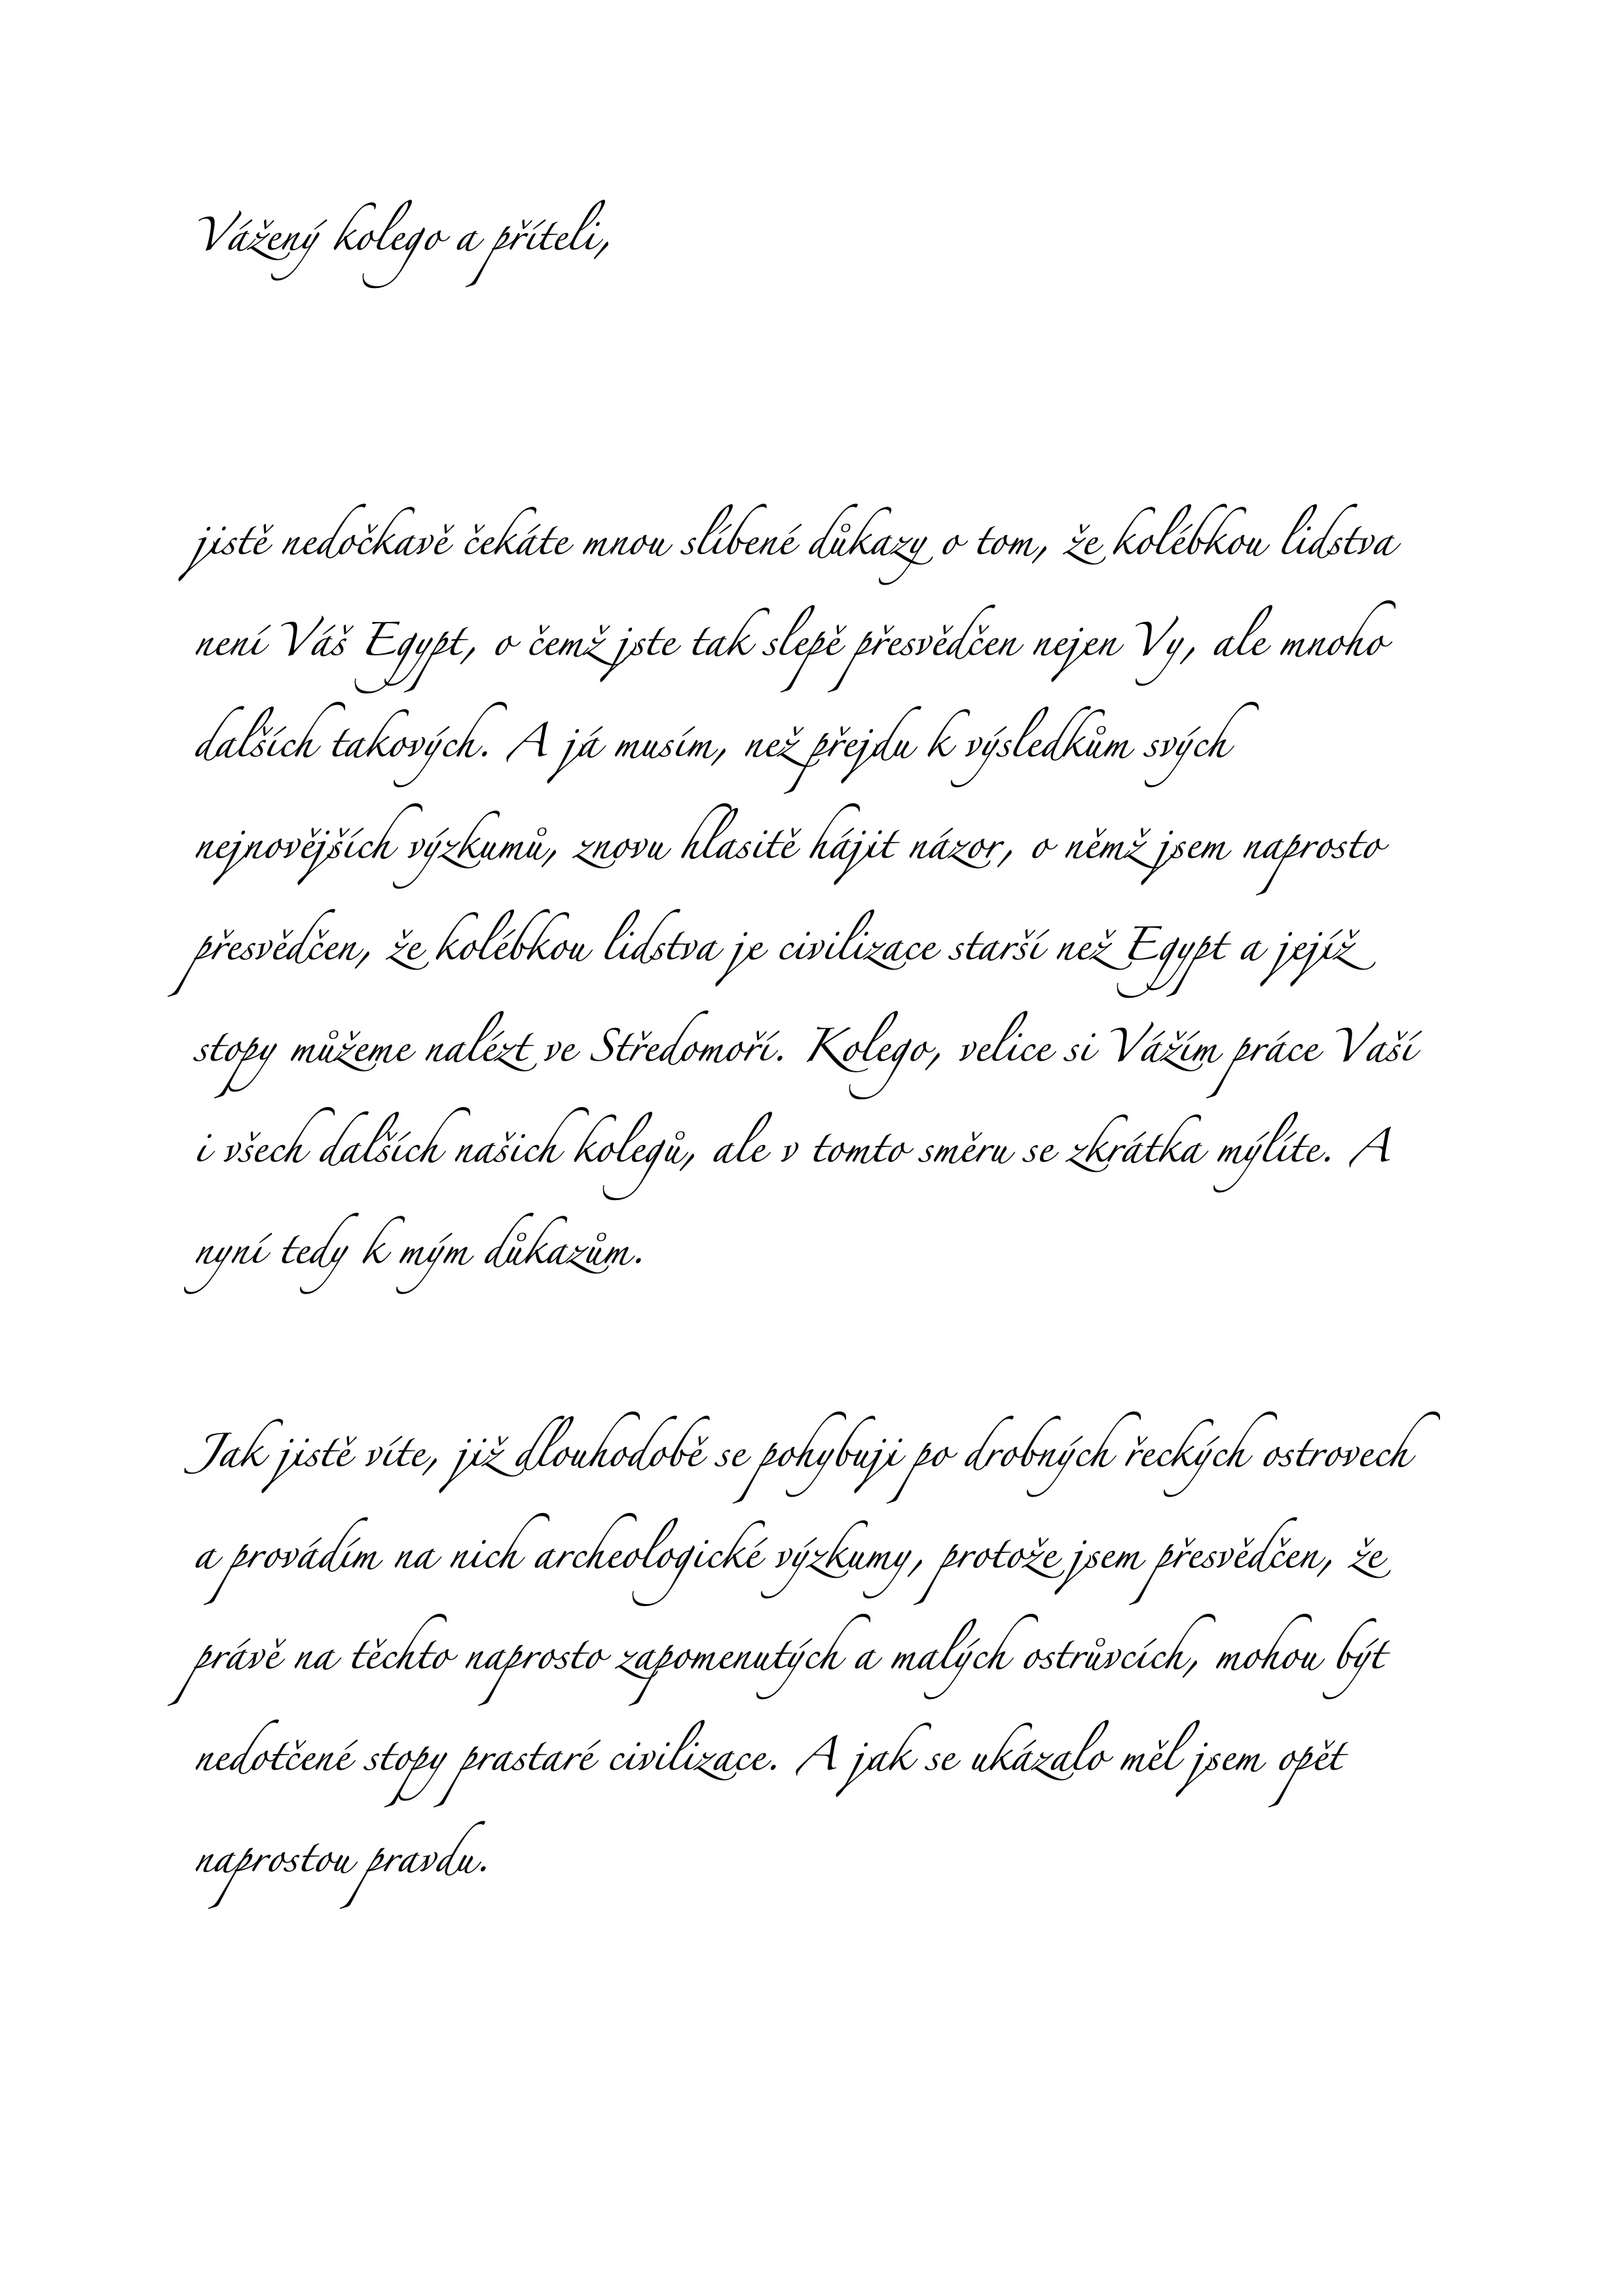 Vážený kolego a příteli,
jistě nedočkavě čekáte mnou slíbené důkazy o tom, že kolébkou lidstva
není Váš Egypt, o čemž jste tak slepě přesvědčen nejen Vy, ale mnoho
dalších takových. A já musím, než přejdu k výsledkům svých
nejnovějších výzkumů, znovu hlasitě hájit názor, o němž jsem naprosto
přesvědčen, že kolébkou lidstva je civilizace starší než Egypt a jejíž
stopy můžeme nalézt ve Středomoří. Kolego, velice si Vážím práce Vaší
i všech dalších našich kolegů, ale v tomto směru se zkrátka mýlíte. A
nyní tedy k mým důkazům.
Jak jistě víte, již dlouhodobě se pohybuji po drobných řeckých ostrovech
a provádím na nich archeologické výzkumy, protože jsem přesvědčen, že
právě na těchto naprosto zapomenutých a malých ostrůvcích, mohou být
nedotčené stopy prastaré civilizace. A jak se ukázalo měl jsem opět
naprostou pravdu.